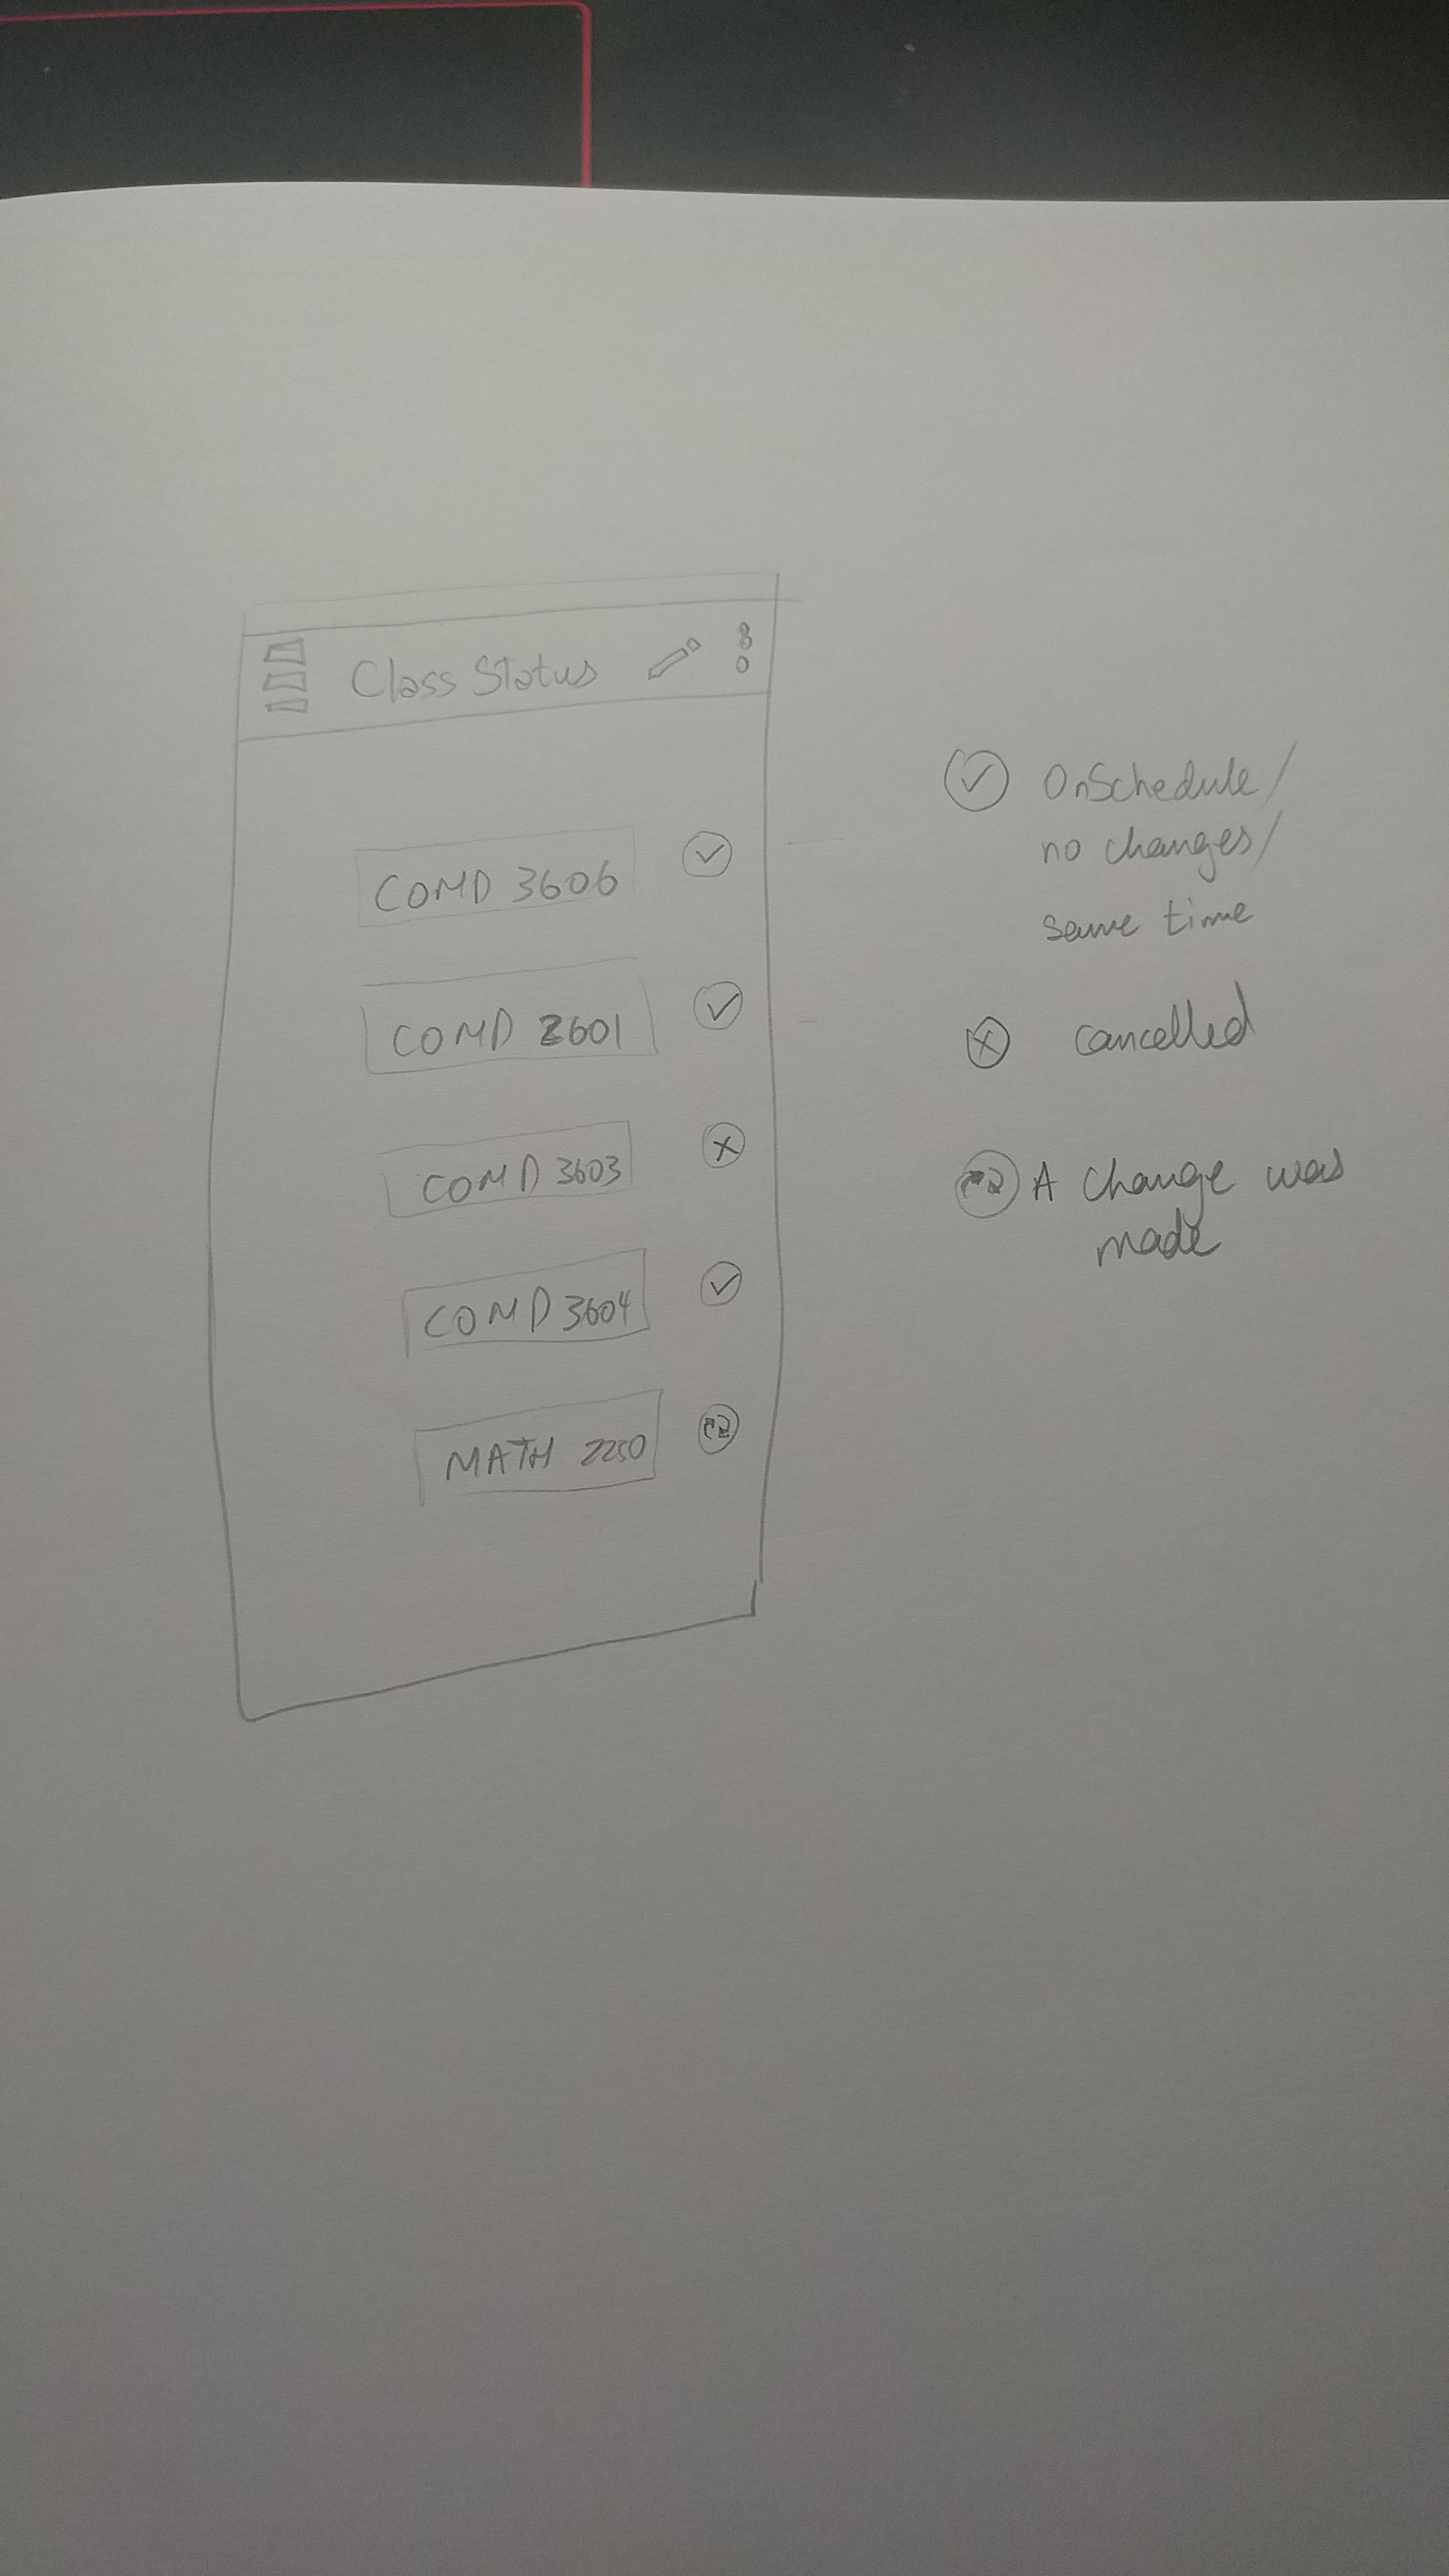 Class Status
COMP 3606
COMP 2601
COMP 3603
COMP 3604
MATH 2250
OnSchedule/
no changes/
same time
cancelled
A change was
made